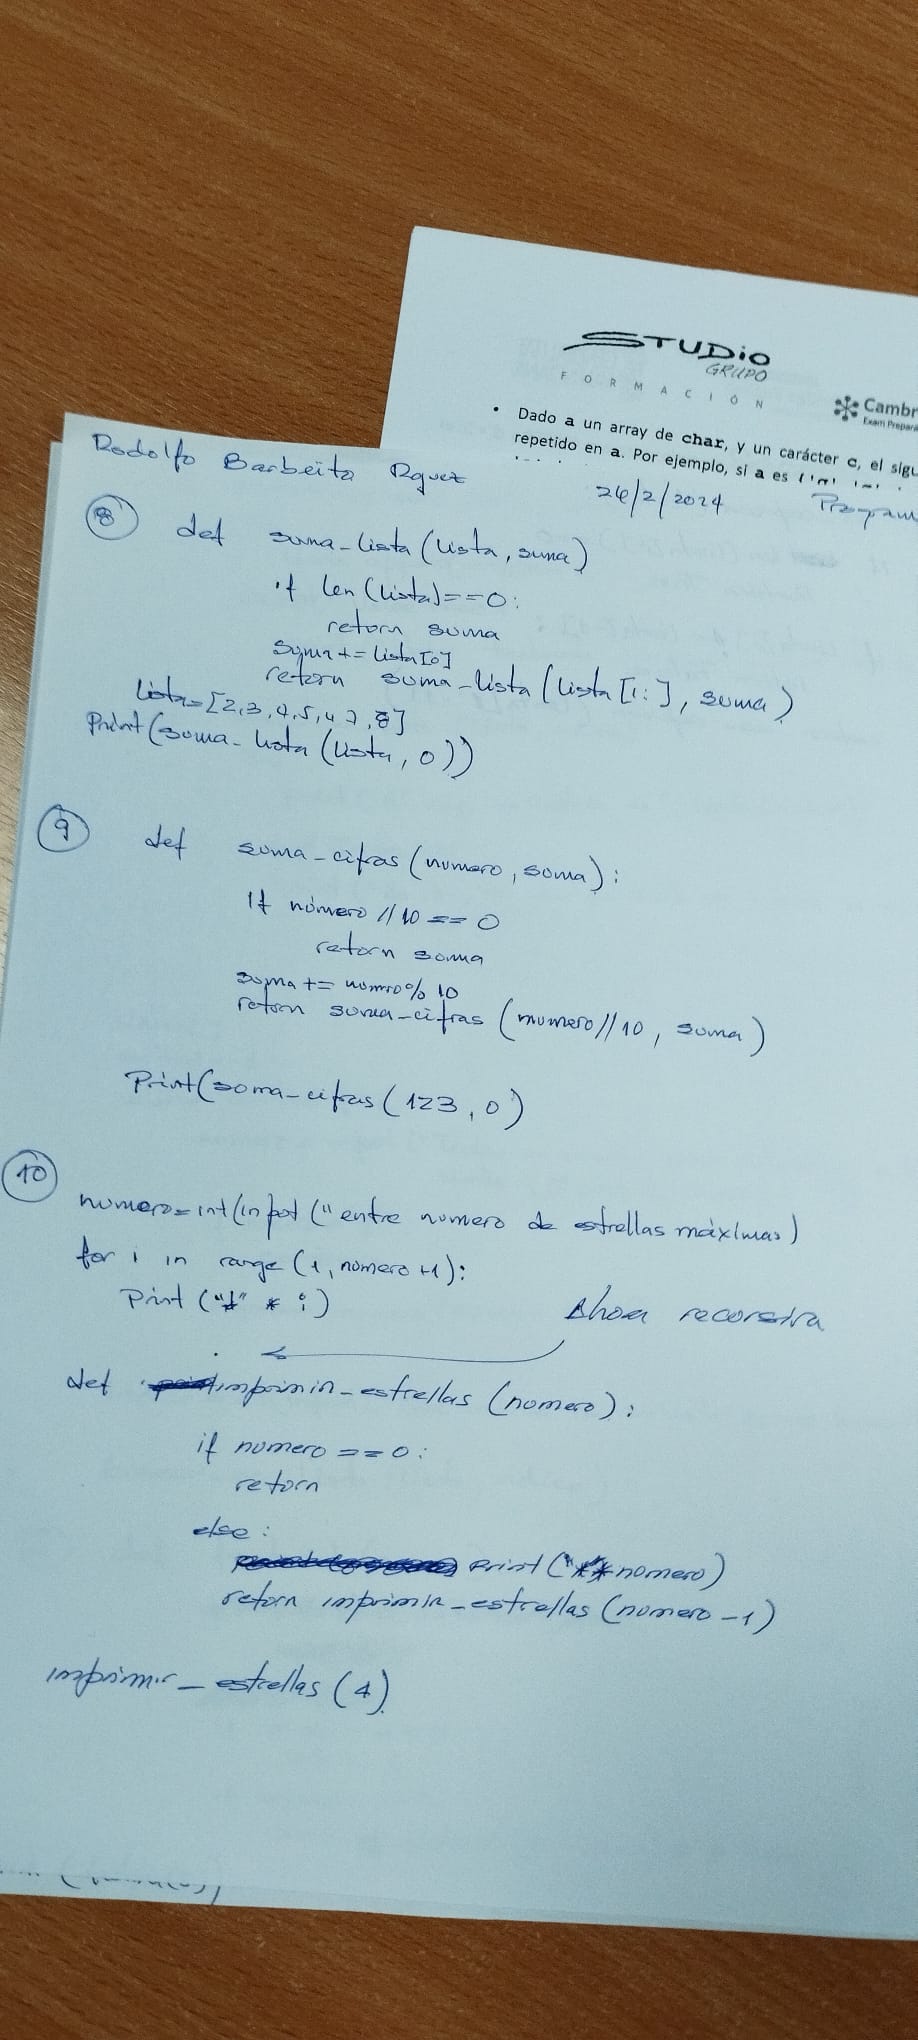 STUDIO
GRUPO
FORMACIÓN
Cambr
Exam Prepara
• Dado a un array de char, y un carácter c, el sigu
repetido en a. Por ejemplo, si a es
Rodolfo Barbeito Rguez
26/2/2024 Program
8 def suma-lista (lista, suma)
if len (lista)==0:
return suma
suma += lista [0]
return suma-lista (lista [1:], suma)
lista=[2,3,4,5,4 7,8]
Print (suma-lista (lista, 0))
9 def suma-cifras (numero, suma):
If número // 10 == 0
return suma
suma += numro % 10
return suma-cifras (numero//10, suma)
Print (suma-cifras (123, 0)
10
numero= int (input ("entre numero de estrellas máximas)
for i in range (1, numero +1):
Print ("*" * i)
Ahora recursiva
def imprimir-estrellas (numero):
if numero == 0:
return
else:
Print ("*"* numero)
return imprimir-estrellas (numero -1)
imprimir-estrellas (4)